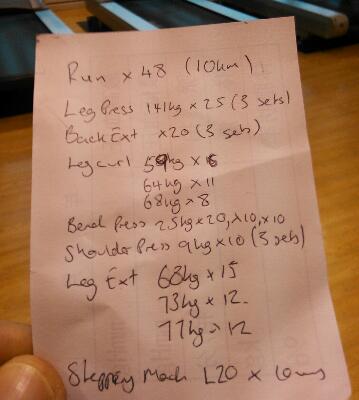 Run x 48 (10km)
Leg Press 141kg x 25 (3 sets)
Back Ext x20 (3 sets)
Leg curl 59kg x 16
64kg x 11
68kg x 8
Bend Press 25kg x 20, x10, x10
Shoulder Press 9kg x 10 (3 sets)
Leg Ext 68kg x 15
73kg x 12
77kg x 12
Stepping Mach L20 x 10